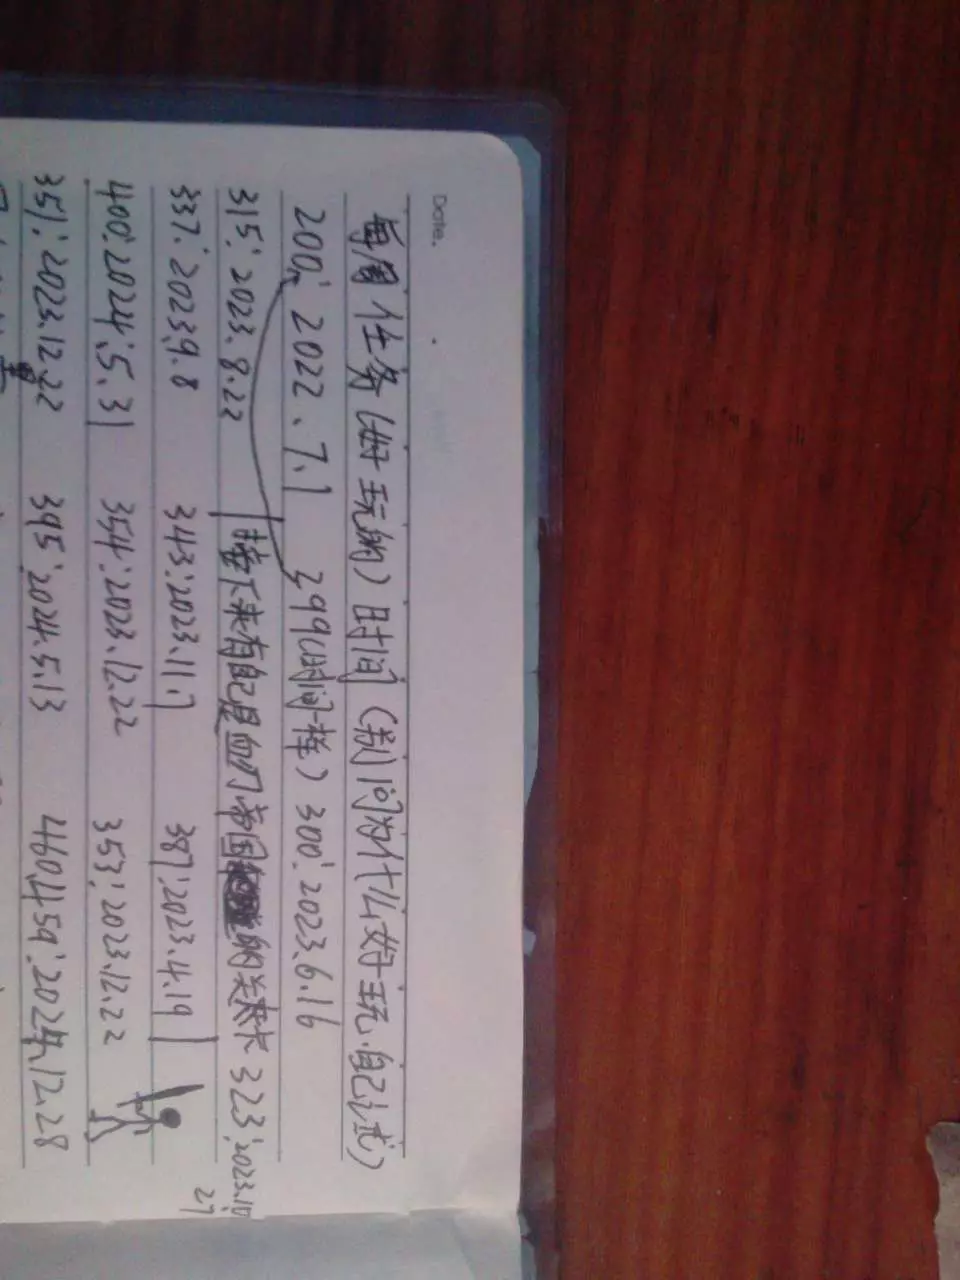 Date.
每周任务(好玩的)时间(别问为什么好玩.自己试)
200: 2022.7.1 299(时间一样) 300: 2023.6.16
315: 2023.8.22 接下来有配是血刃帝国的关卡 323: 2023.10.27
337: 2023.9.8 343:2023.11.7 387:2023.4.19
400:2024.5.31 354:2023.12.22 353:2023.12.22
351:2023.12.22 395:2024.5.13 460,459:2024.12.28